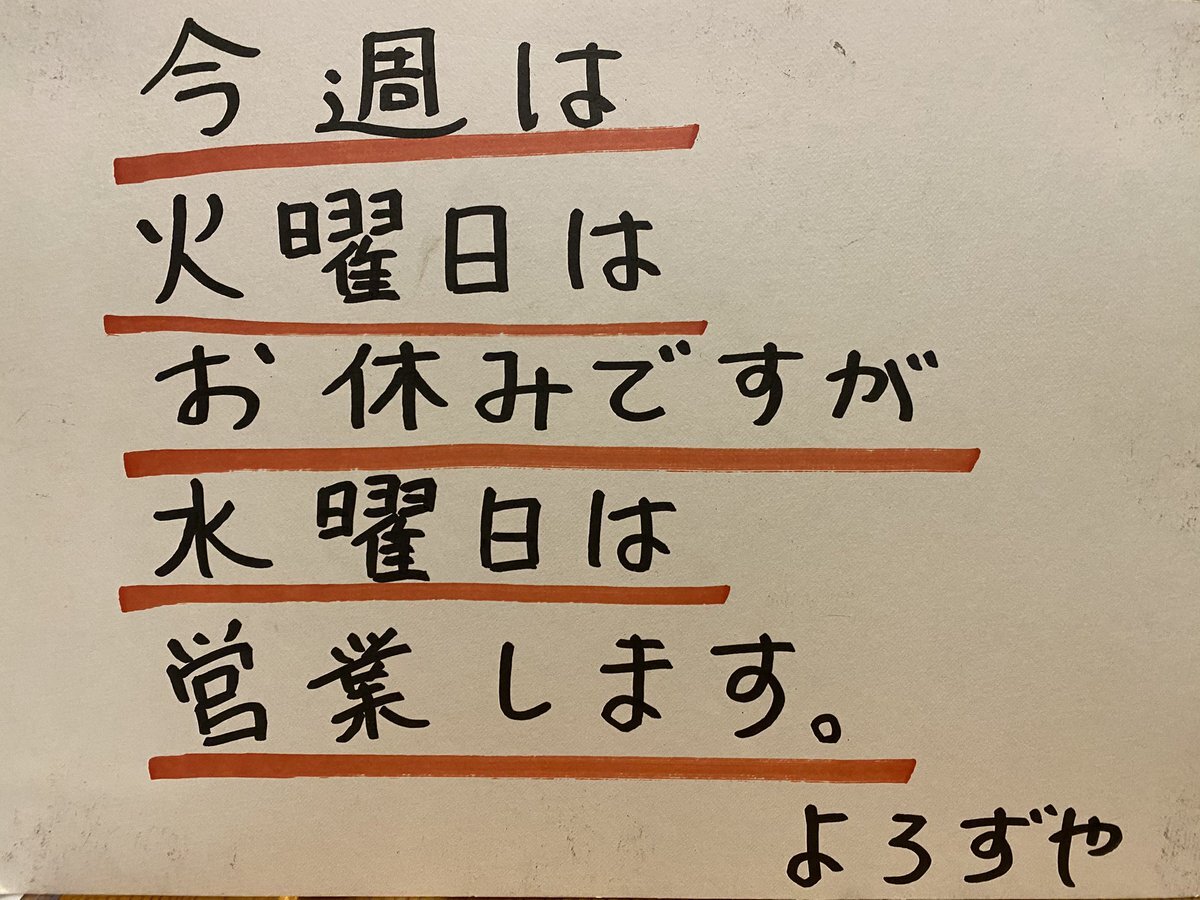 今週は
火曜日は
お休みですが
水曜日は
営業します。
よろずや